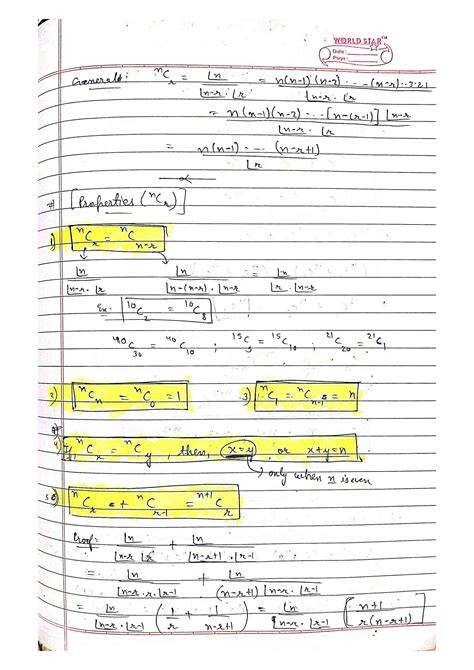 WORLD STAR™
Date :
Page :
General: ⁿCᵣ = ∟n / ∟n-r . ∟r = n(n-1)(n-2) ---(n-r)..3.2.1 / ∟n-r . ∟r
= n(n-1)(n-2)...[n-(r-1)] ∟n-r / ∟n-r . ∟r
= n(n-1) ---- (n-r+1) / ∟r
# [Properties (ⁿCᵣ)]
1) ⁿCᵣ = ⁿCₙ₋ᵣ
∟n / ∟n-r . ∟r ∟n / ∟n-(n-r) . ∟n-r = ∟n / ∟r . ∟n-r
Ex: ¹⁰C₂ = ¹⁰C₈
⁴⁰C₃₀ = ⁴⁰C₁₀ ; ¹⁵C₅ = ¹⁵C₁₀ ; ²¹C₂₀ = ²¹C₁
2) ⁿCₙ = ⁿC₀ = 1 3) ⁿC₁ = ⁿCₙ₋₁ = n
4) If ⁿCₓ = ⁿC_y , then, x=y , or x+y=n
↳ only when n is even
5) ⁿCᵣ + ⁿCᵣ₋₁ = ⁿ⁺¹Cᵣ
Proof: ∟n / ∟n-r ∟r + ∟n / ∟n-r+1 . ∟r-1
= ∟n / ∟n-r . r . ∟r-1 + ∟n / (n-r+1) ∟n-r . ∟r-1
= ∟n / ∟n-r . ∟r-1 (1/r + 1/n-r+1) = ∟n / ∟n-r . ∟r-1 [n+1 / r(n-r+1)]